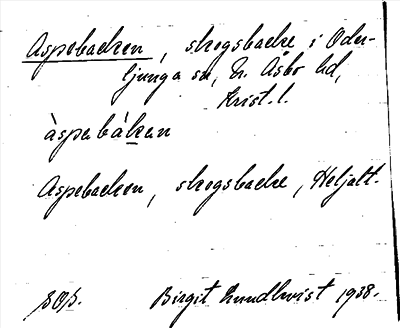 Aspebacken, skogsbacke i Oder-
ljunga sn, N. Åsbo hd,
Krist. l.
àspebákan
Aspebacken, skogsbacke, Heljalt.
Birgit Lundkvist 1938.